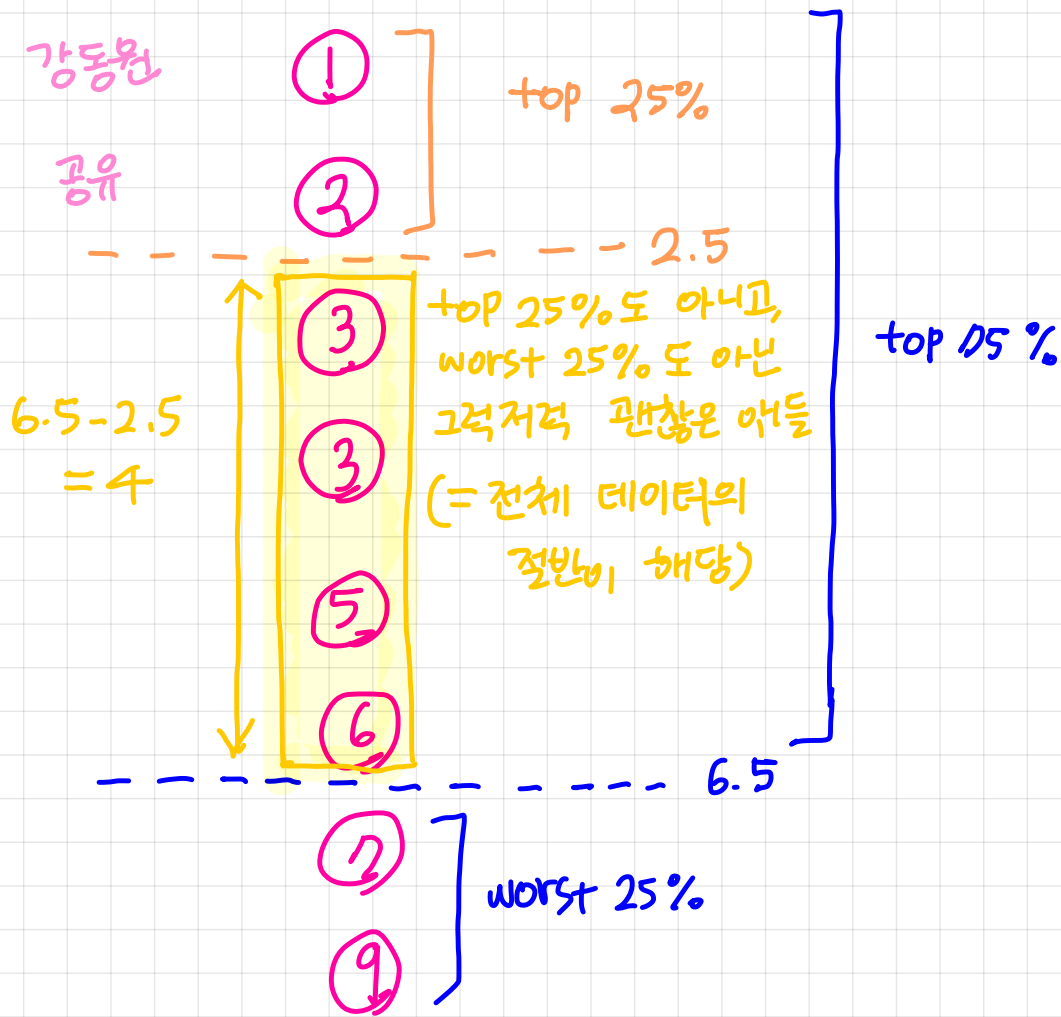 강동원
①
top 25%
공유
②
2.5
③
top 25%도 아니고,
worst 25%도 아닌
그럭저럭 괜찮은 애들
(= 전체 데이터의
절반이 해당)
top 75%
6.5-2.5
=4
③
⑤
⑥
6.5
⑦
worst 25%
⑨